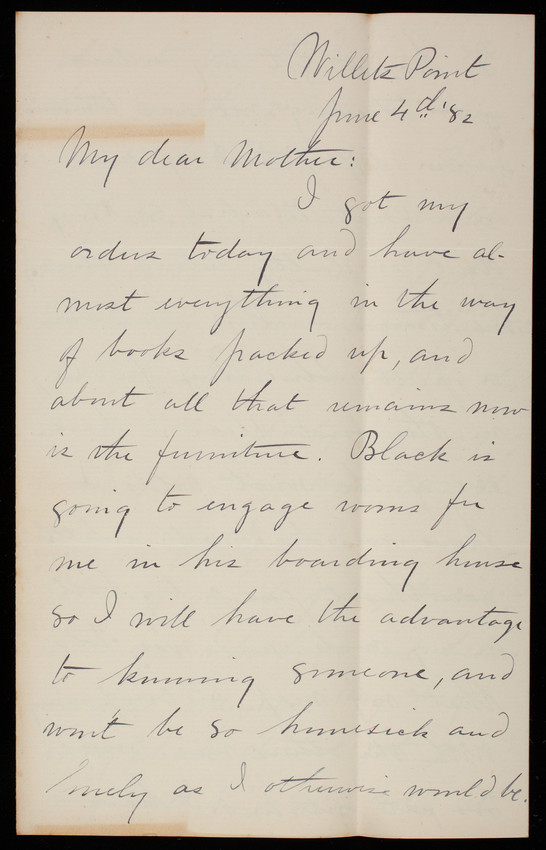 Willets Point
June 4th '82
My dear Mother:
I got my
orders today and have al-
most everything in the way
of books packed up, and
about all that remains now
is the furniture. Black is
going to engage rooms for
me in his boarding house
so I will have the advantage
to knowing someone, and
won't be so homesick and
lonely as I otherwise would be.